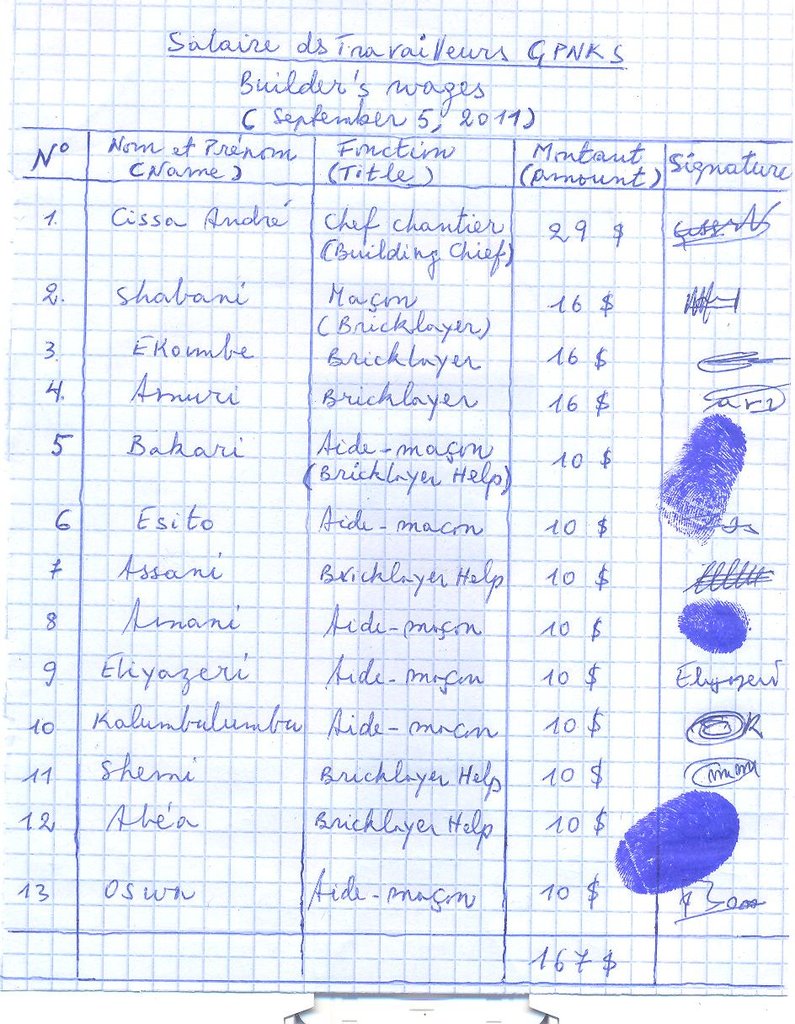 Salaire ds Travailleurs GPNKS
Builder's wages
( September 5, 2011)
N° Nom et Prénom (Name) Fonction (Title) Montant (Amount) Signature
1. Cissa André Chef chantier (Building Chief) 29 $
2. Shabani Maçon (Bricklayer) 16 $
3. Ekombe Bricklayer 16 $
4. Amuri Bricklayer 16 $
5 Bakari Aide-maçon (Bricklayer Help) 10 $
6 Esito Aide-macon 10 $
7 Assani Bricklayer Help 10 $
8 Amani Aide-maçon 10 $
9 Eliyazeri Aide-maçon 10 $
10 Kalumbulumbu Aide-macon 10 $
11 Shemi Bricklayer Help 10 $
12 Abéa Bricklayer Help 10 $
13 Oswa Aide-maçon 10 $
167 $